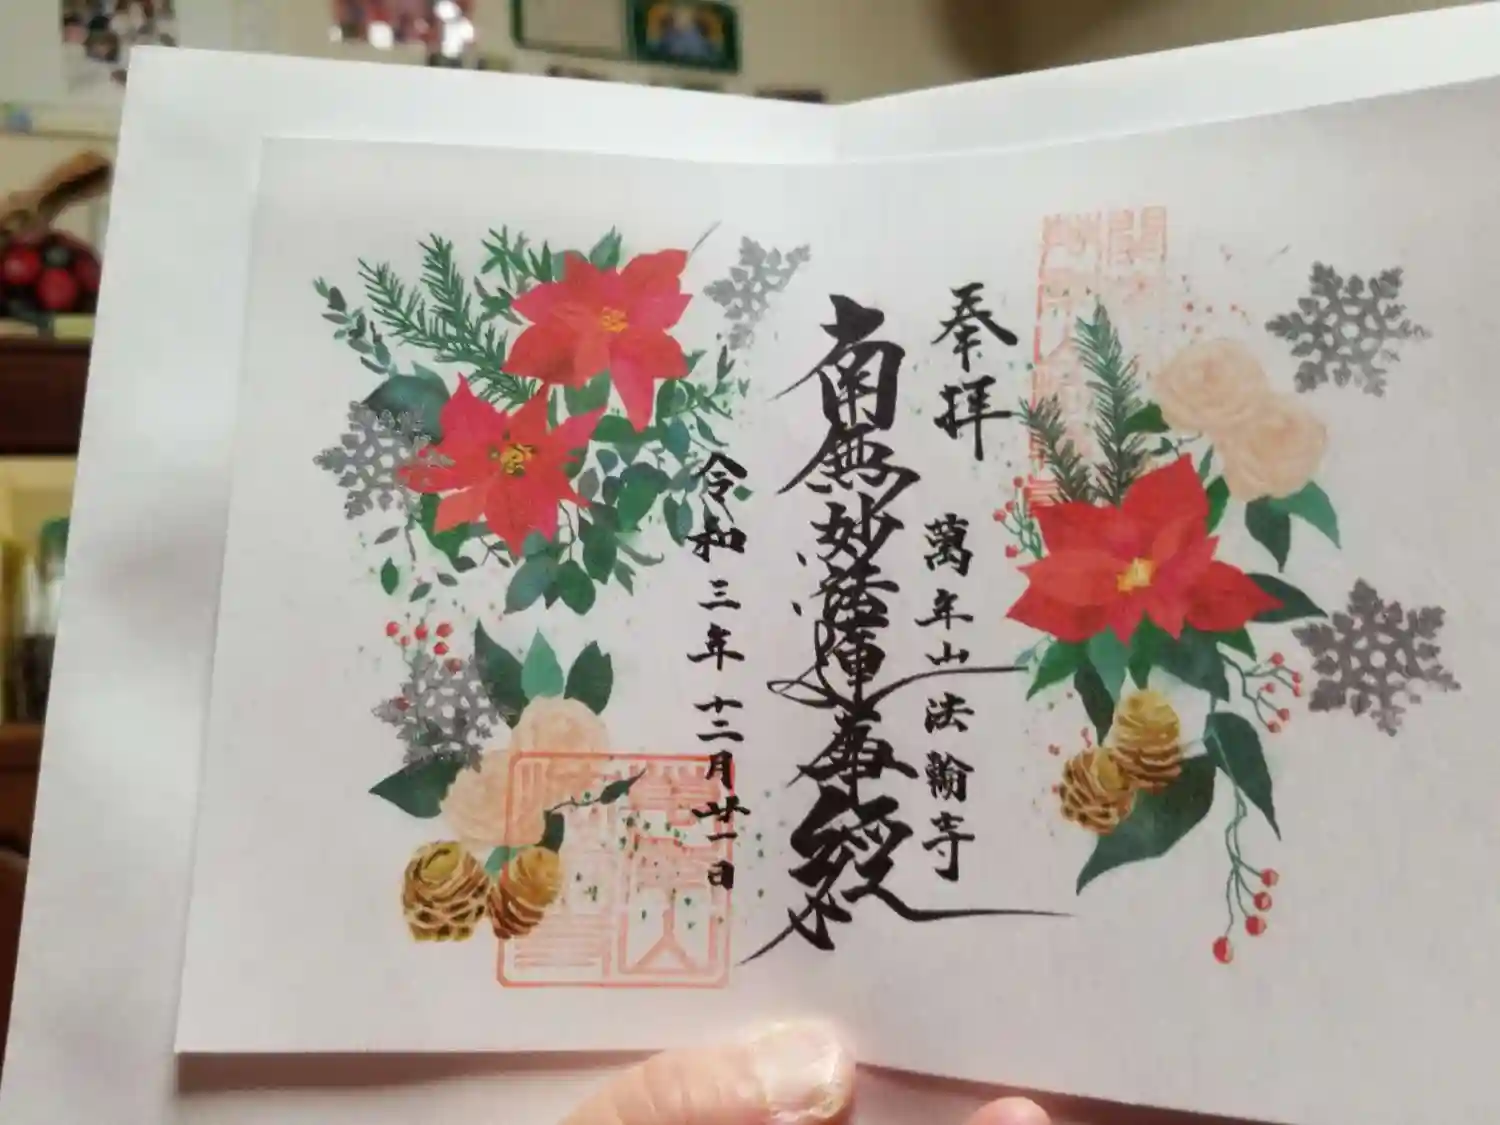 奉拝
萬年山 法輪寺
南無妙法蓮華経
令和三年十二月廿一日